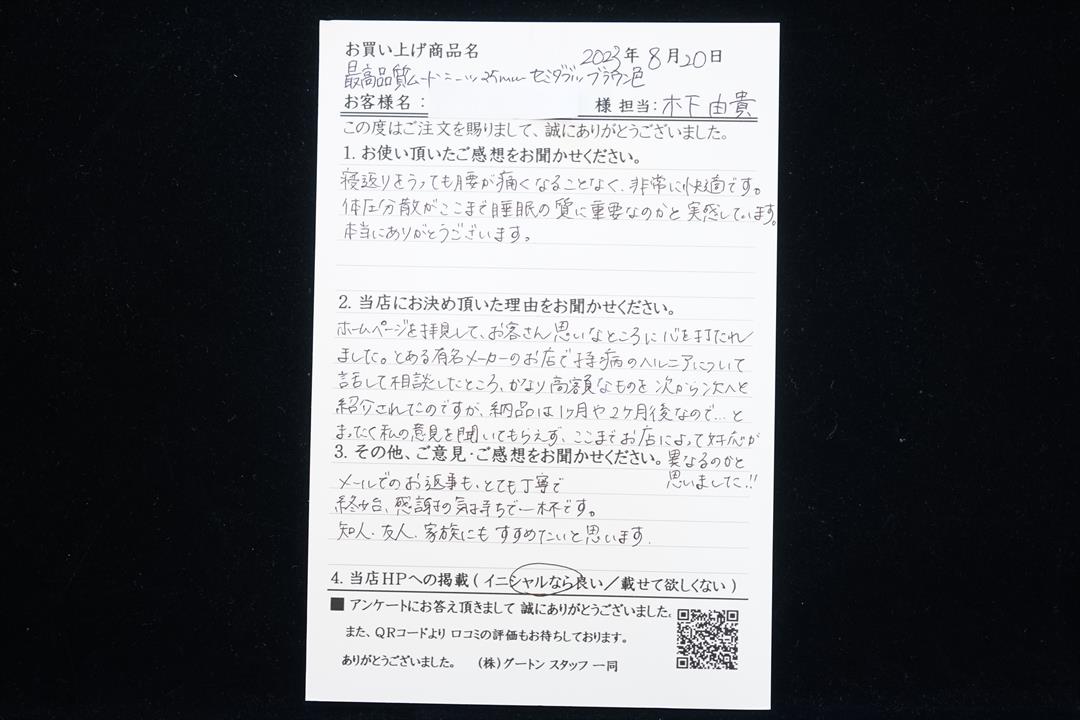 お買い上げ商品名
2023年8月20日
最高品質ムートンシーツ25mm セミダブル ブラウン色
お客様名：
様 担当：木下 由貴
この度はご注文を賜りまして、誠にありがとうございました。
1. お使い頂いたご感想をお聞かせください。
寝返りをうっても腰が痛くなることなく、非常に快適です。
体圧分散がここまで睡眠の質に重要なのかと実感しています。
本当にありがとうございます。
2. 当店にお決め頂いた理由をお聞かせください。
ホームページを拝見して、お客さん思いなところに心を打たれ
ました。とある有名メーカーのお店で持病のヘルニアについて
話して相談したところ、かなり高額なものを次から次へと
紹介されたのですが、納品は1ヶ月や2ヶ月後なので…と
まったく私の意見を聞いてもらえず、ここまでお店によって対応が
異なるのかと
思いました!!
3. その他、ご意見・ご感想をお聞かせください。
メールでのお返事も、とても丁寧で
終始、感謝の気持ちで一杯です。
知人、友人、家族にもすすめたいと思います.
4. 当店HPへの掲載 ( イニシャルなら良い ／ 載せて欲しくない )
■ アンケートにお答え頂きまして 誠にありがとうございました。
また、QRコードより 口コミの評価もお待ちしております。
ありがとうございました。 （株）グートン スタッフ 一同